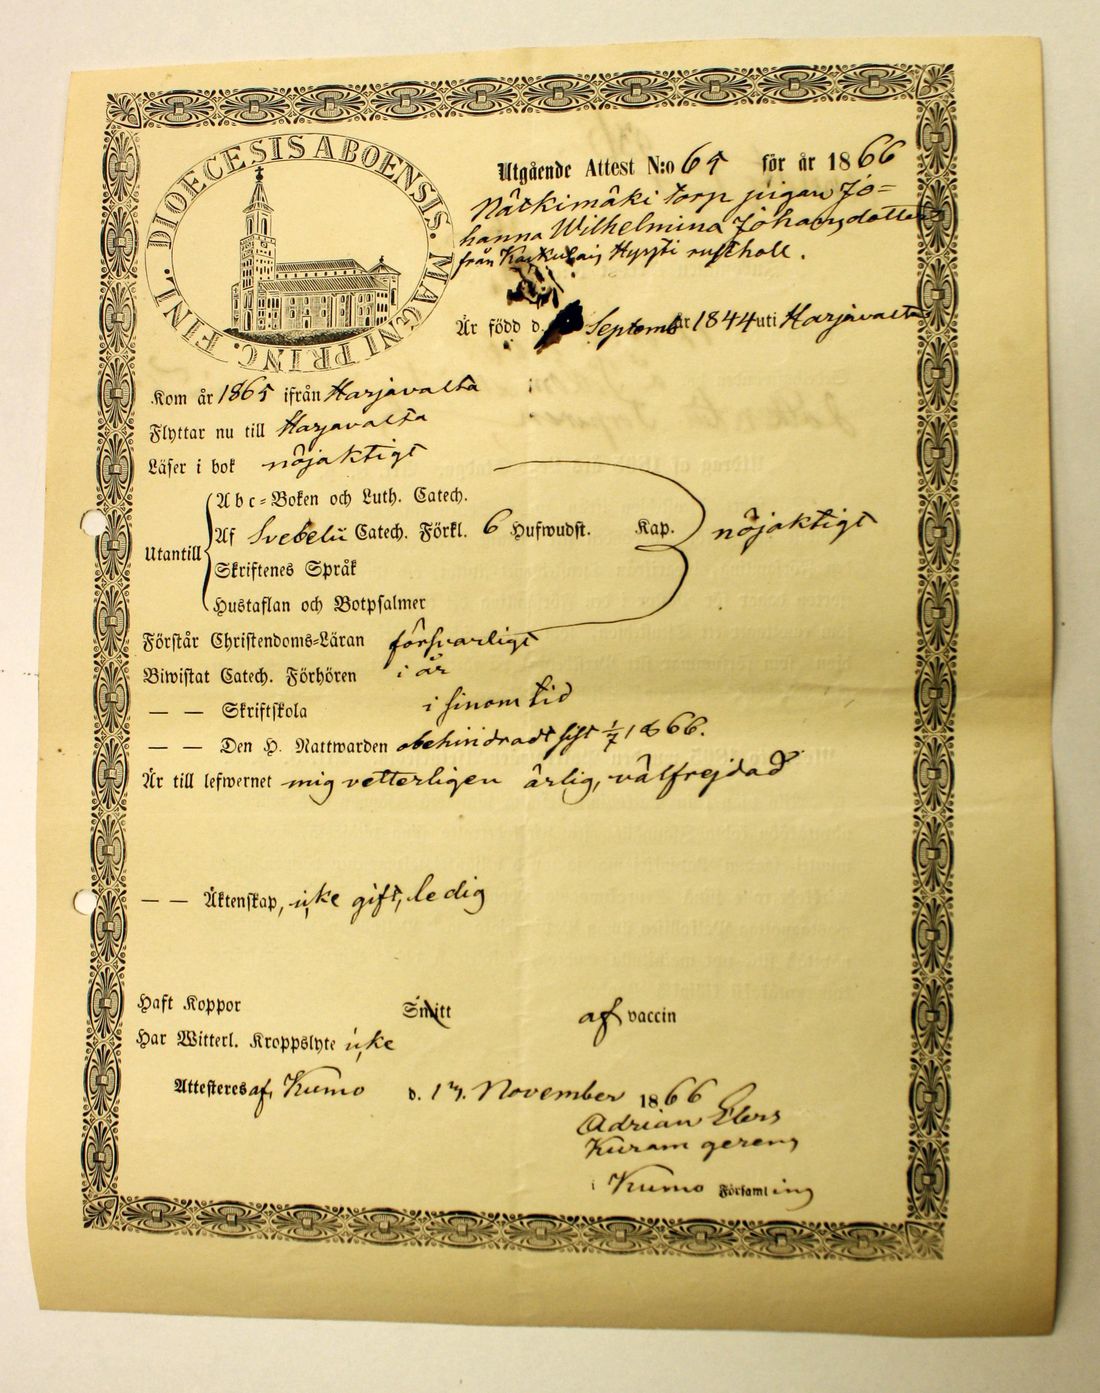 DIOECESIS ABOENSIS. MAGNI PRINC. FINL.
Utgående Attest N:o 65 för år 1866
Nätkimäki torp pigan Jo=
hanna Wilhelmina Johansdotter
från Hyysti rusthåll.
Är född d. Septembr 1844 uti Harjavalta
Kom år 1865 ifrån Harjavalta
Flyttar nu till Harjavalta
Läser i bok nöjaktigt
Abc=Boken och Luth. Catech.
Utantill Af Svebelii Catech. Förkl. 6 Hufwudst. Kap. nöjaktigt
Skriftenes Språk
Hustaflan och Botpsalmer
Förstår Christendoms=Läran försvarligt
Biwistat Catech. Förhören i år
— — Skriftskola i sinom tid
— — Den H. Nattwarden obehindradt sist 1/7 1866.
Är till lefwernet mig vetterligen ärlig, välfrejdad
— — Äktenskap, icke gift, ledig
Haft Koppor Smitt af vaccin
Har Witterl. Kroppslyte icke
Attesteres af, Kumo d. November 1866
Adrian Elers
i Kumo Församling